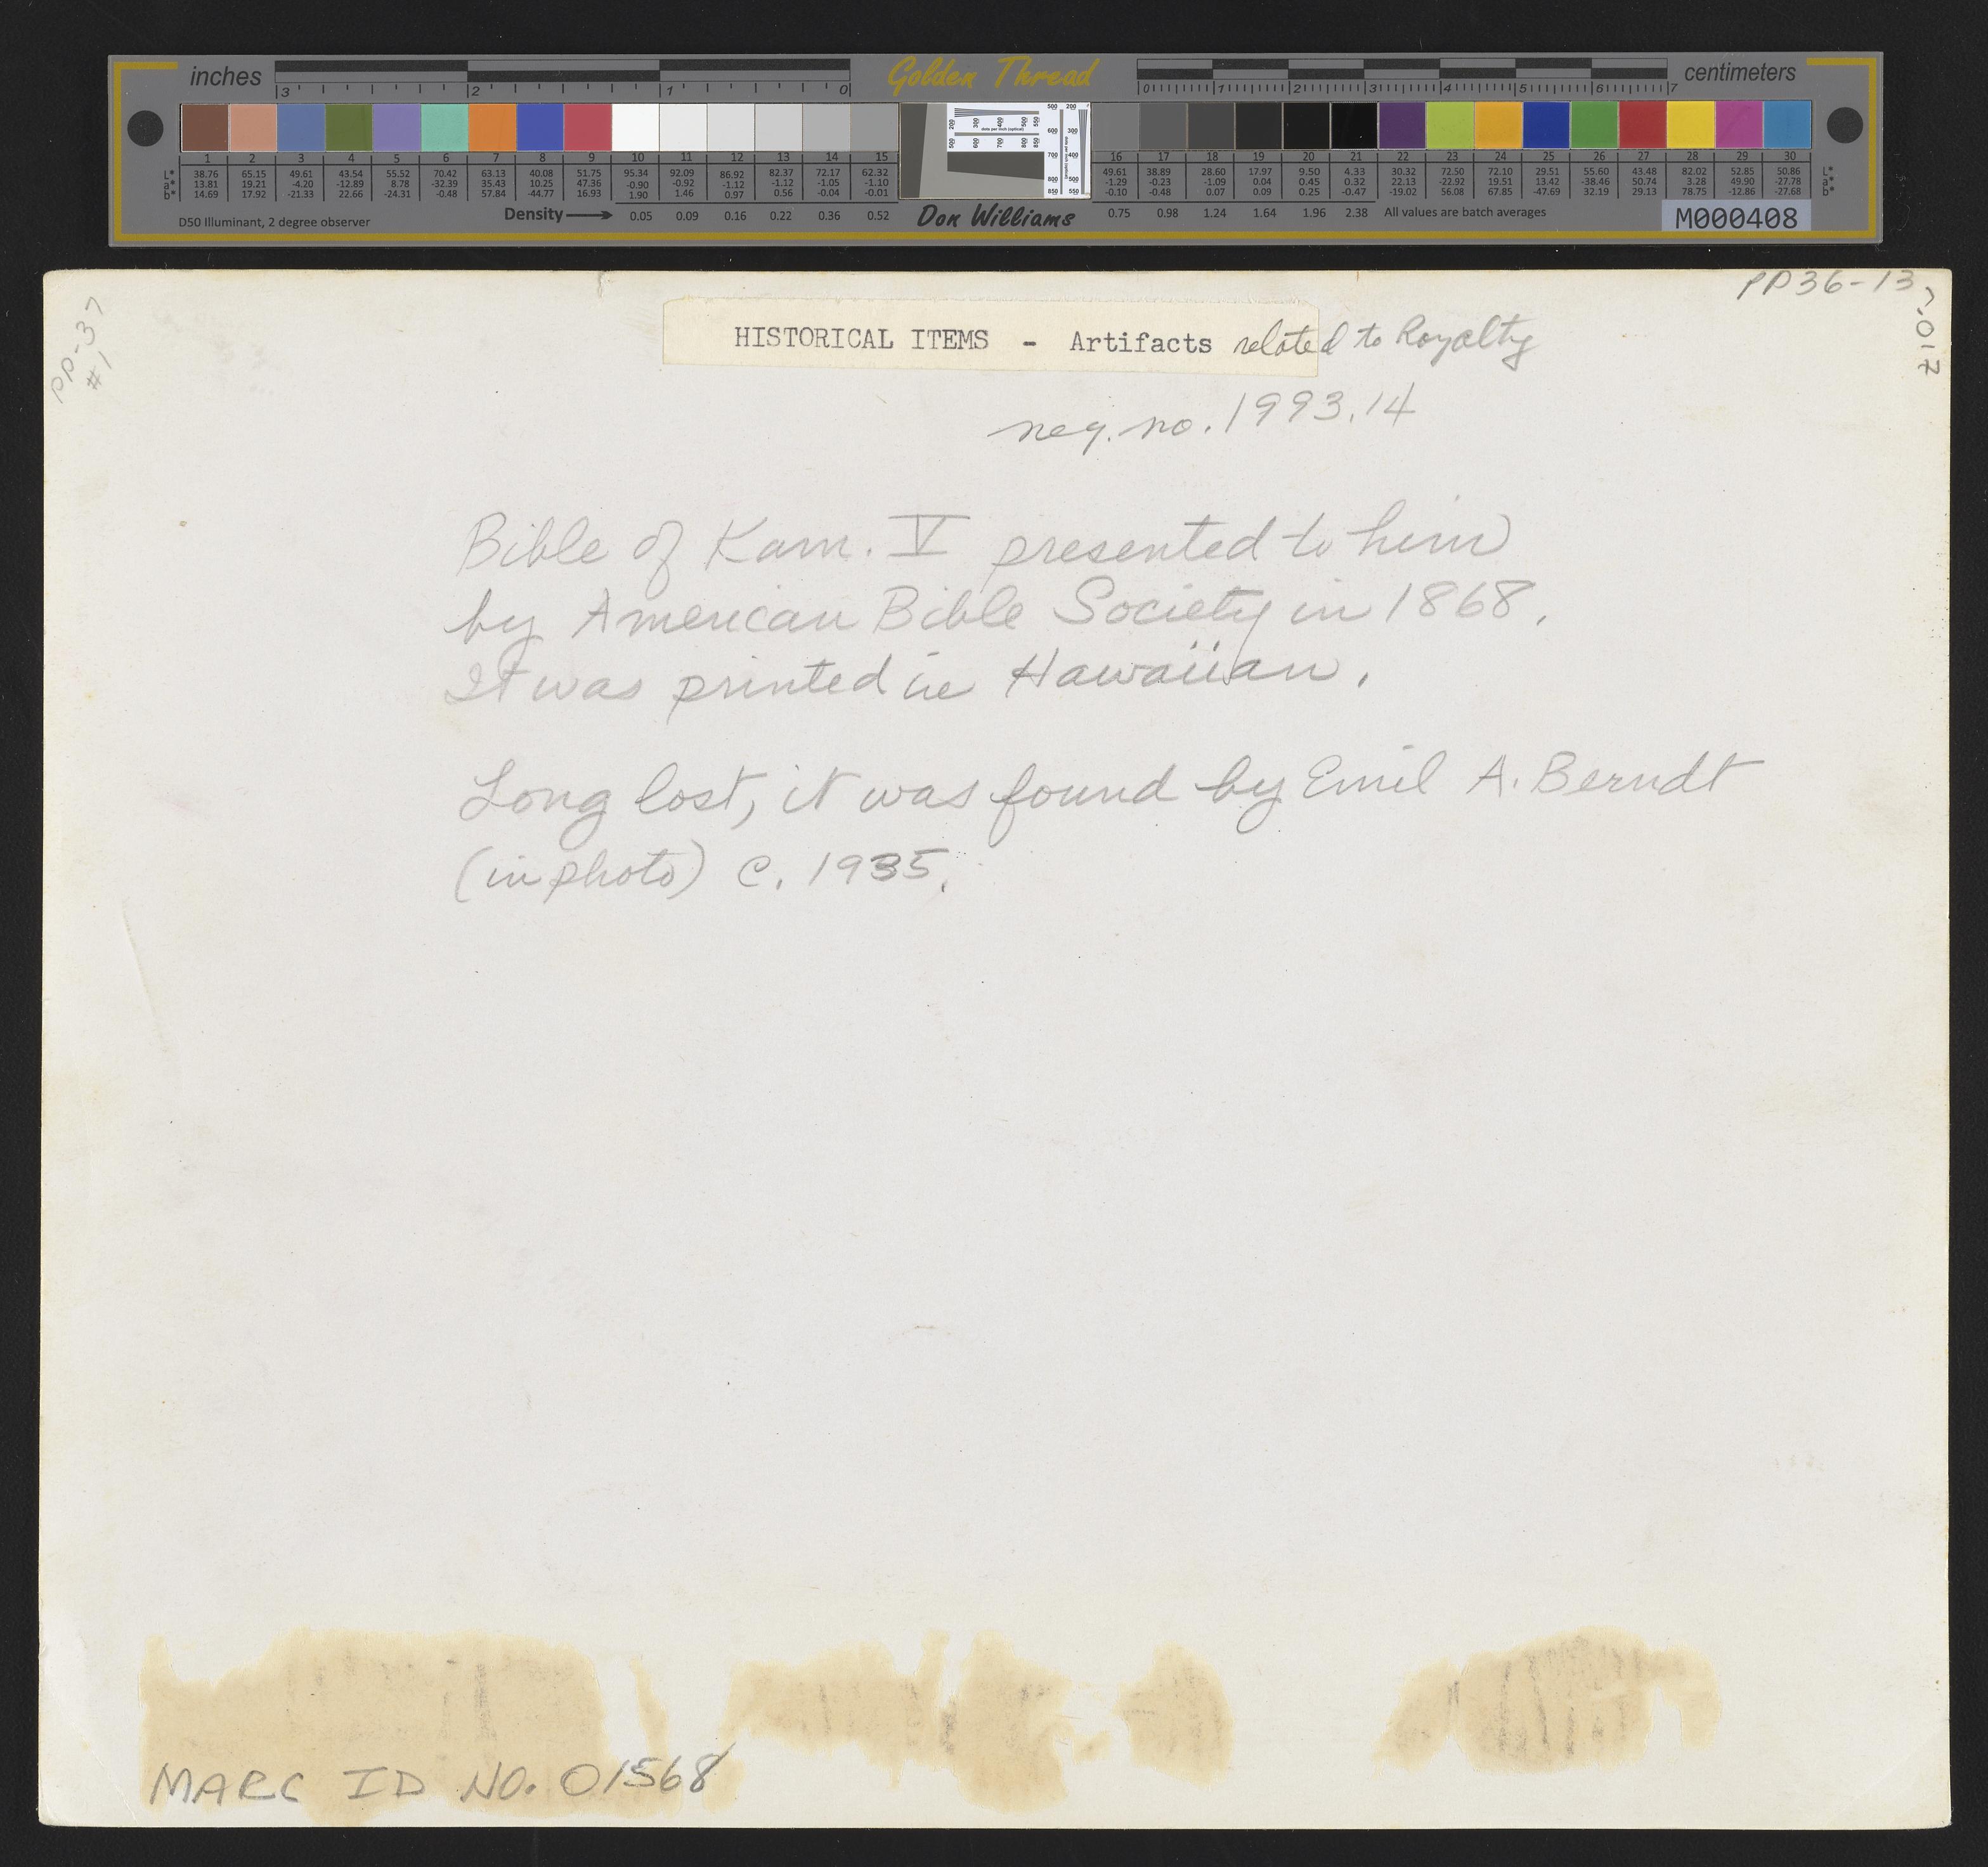 inches Golden Thread centimeters
3 2 1 0 0 1 2 3 4 5 6 7
1 2 3 4 5 6 7 8 9 10 11 12 13 14 15 16 17 18 19 20 21 22 23 24 25 26 27 28 29 30
L* 38.76 65.15 49.61 43.54 55.52 70.42 63.13 40.08 51.75 95.34 92.09 86.92 82.37 72.17 62.32 49.61 38.89 28.60 17.97 9.50 4.33 30.32 72.50 72.10 29.51 55.60 43.48 82.02 52.85 50.86 L*
a* 13.81 19.21 -4.20 -12.89 8.78 -32.39 35.43 10.25 47.36 -0.90 -0.92 -1.12 -1.12 -1.05 -1.10 -1.29 -0.23 -1.09 0.04 0.45 0.32 22.13 -22.92 19.51 13.42 -38.46 50.74 3.28 49.90 -27.78 a*
b* 14.69 17.92 -21.33 22.66 -24.31 -0.48 57.84 -44.77 16.93 1.90 1.46 0.97 0.56 -0.04 -0.01 -0.10 -0.48 0.07 0.09 0.25 -0.47 -19.02 56.08 67.85 -47.69 32.19 29.13 78.75 -12.86 -27.68 b*
D50 Illuminant, 2 degree observer Density 0.05 0.09 0.16 0.22 0.36 0.52 Don Williams 0.75 0.98 1.24 1.64 1.96 2.38 All values are batch averages M000408
PP-37
#1
PP36-13,
7.017
HISTORICAL ITEMS - Artifacts related to Royalty
neg. no. 1993.14
Bible of Kam. V presented to him
by American Bible Society in 1868.
It was printed in Hawaiian.
Long lost, it was found by Emil A. Berndt
(in photo) c. 1935.
MARC ID NO. 01568